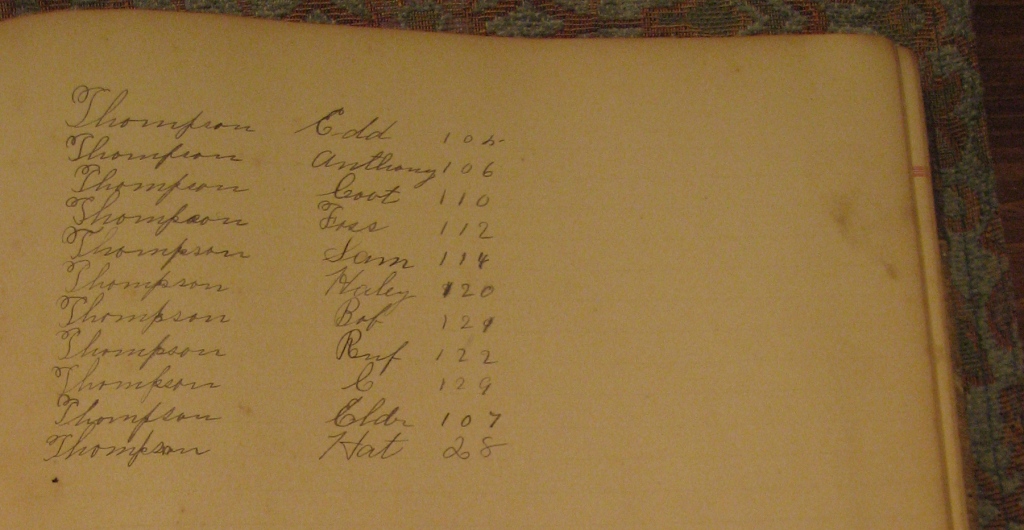 Thompson Edd 105
Thompson Anthony 106
Thompson Coot 110
Thompson Foss 112
Thompson Sam 114
Thompson Haley 120
Thompson Bob 121
Thompson Ruf 122
Thompson C 129
Thompson 107
Thompson Hat 28